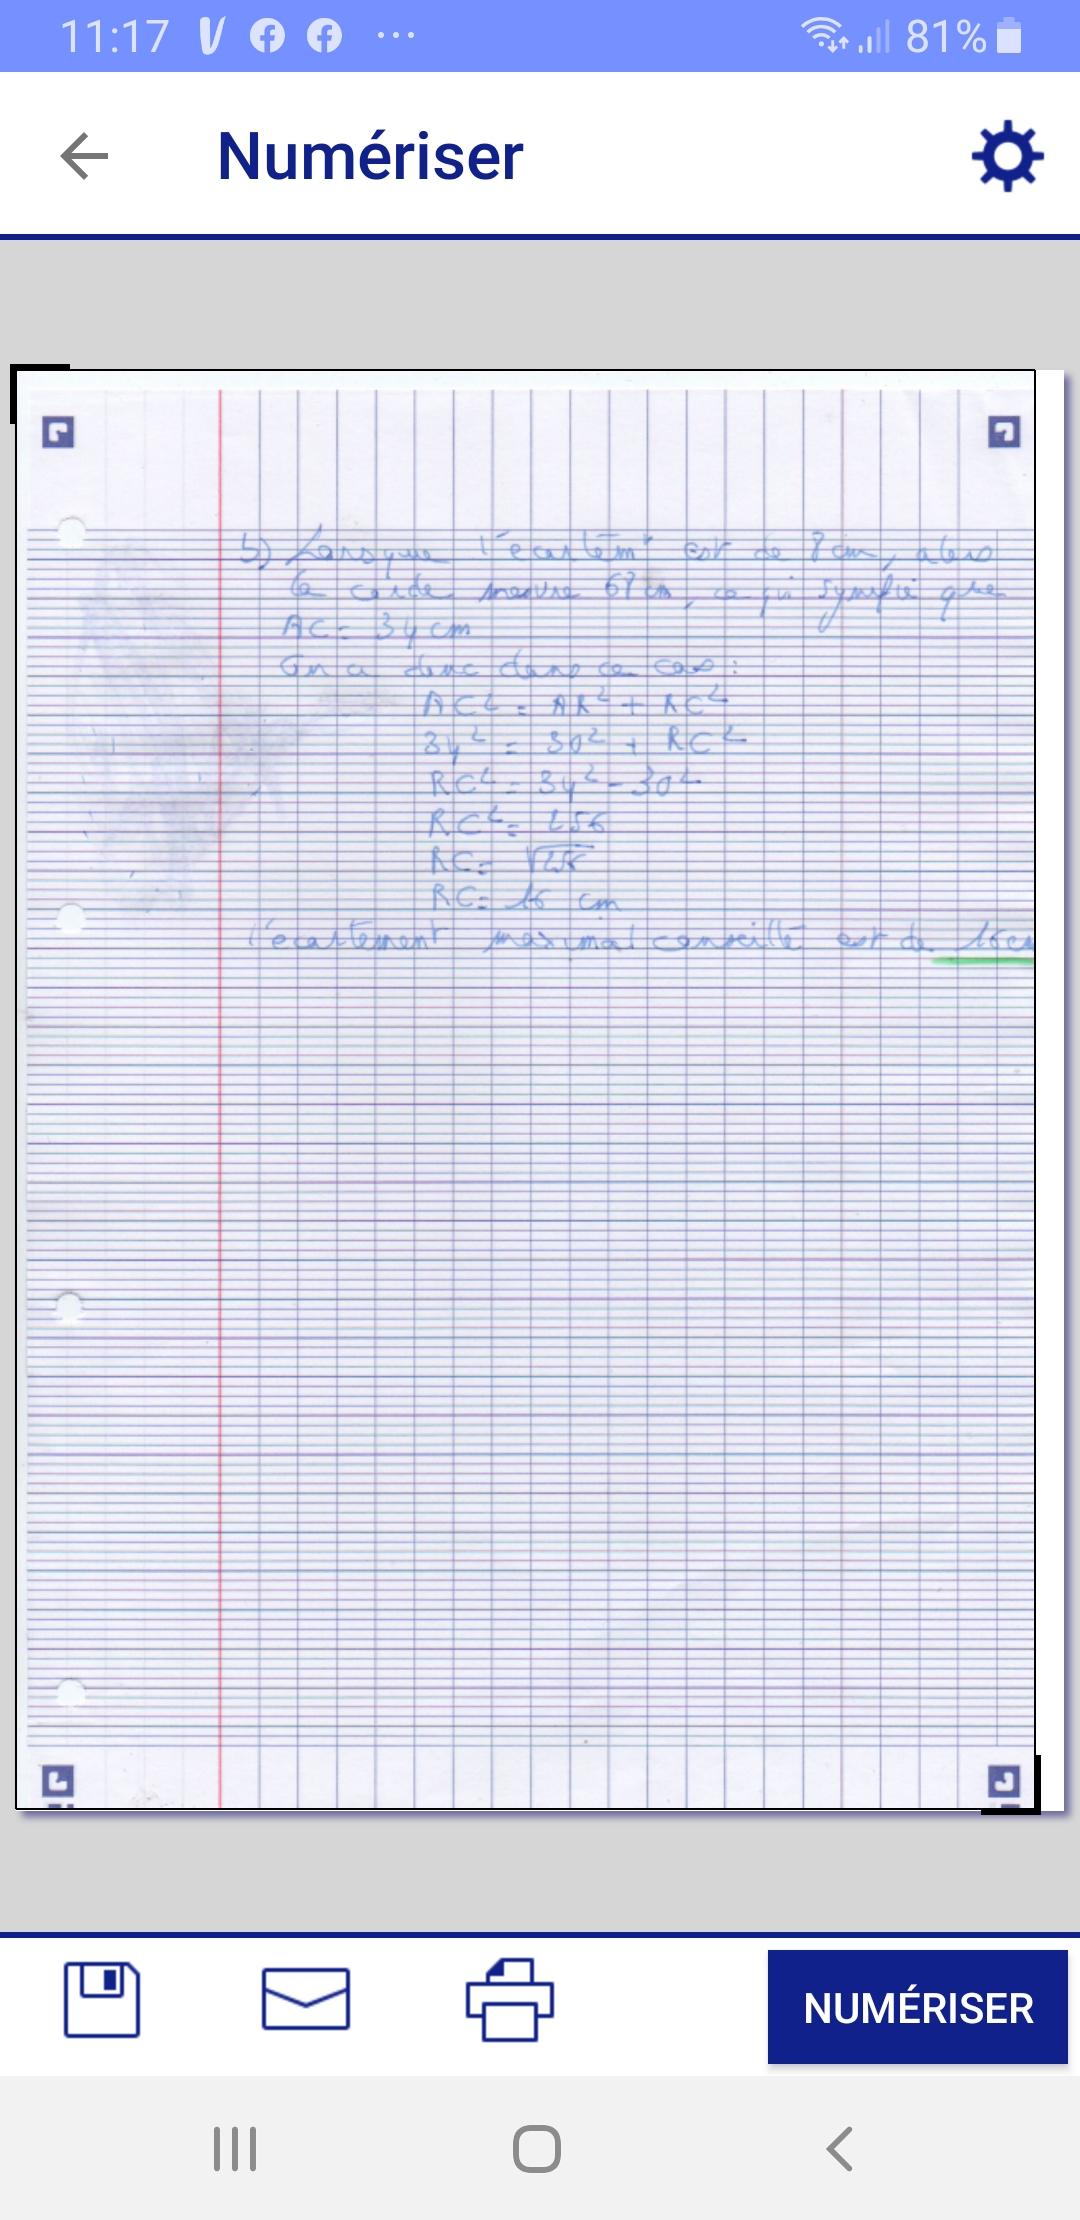 11:17
81%
Numériser
b) Lorsque l'écartemt est de 8 cm, alors
la corde mesure 68 cm, ce qui synifie que
AC = 34 cm
On a donc dans ce cas :
AC² = AR² + RC²
34² = 30² + RC²
RC² = 34² - 30²
RC² = 256
RC = √256
RC = 16 cm
l'écartement maximal conseillé est de 16 cm
NUMÉRISER